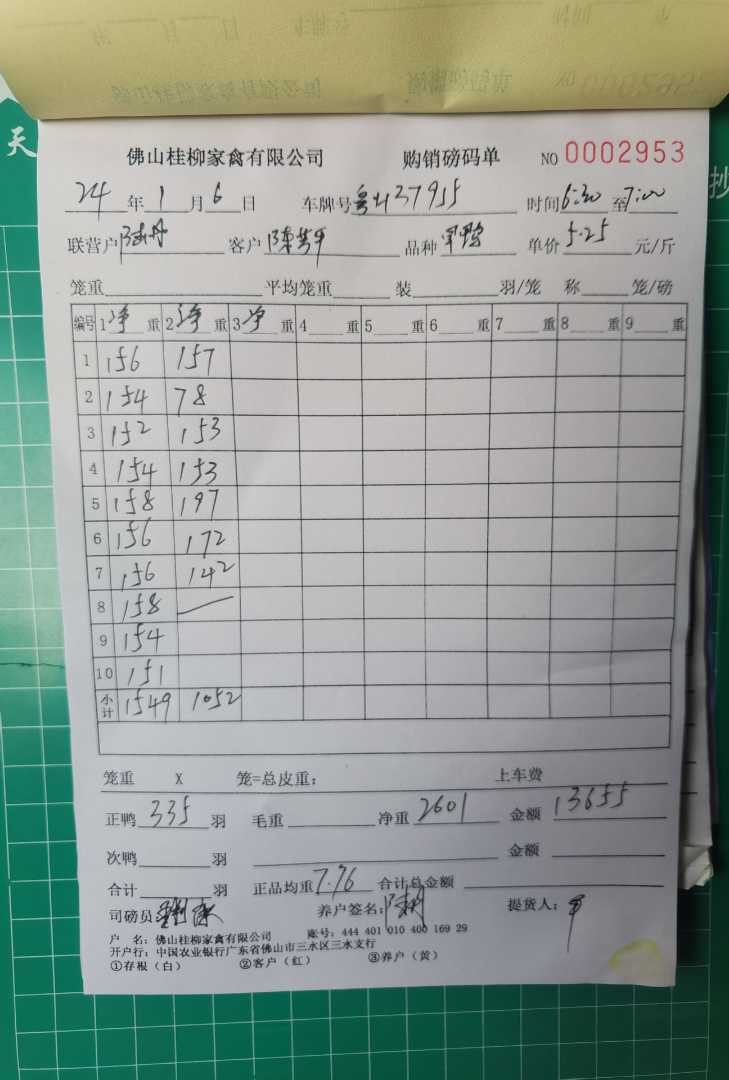 天
抄
佛山桂柳家禽有限公司 购销磅码单 NO 0002953
24年1月6日 车牌号粤H37955 时间6:30至7:00
联营户 客户陈 品种 单价5.25元/斤
笼重 平均笼重 装 羽/笼 称 笼/磅
编号 1净重 2净重 3净重 4重 5重 6重 7重 8重 9重
1 156 157
2 154 78
3 152 153
4 154 153
5 158 197
6 156 172
7 156 142
8 158 —
9 154
10 151
小计 1549 1052
笼重 X 笼=总皮重: 上车费
正鸭335羽 毛重 净重2601 金额13655
次鸭 羽 金额
合计 羽 正品均重7.76 合计总金额
司磅员 养户签名: 提货人:
户 名: 佛山桂柳家禽有限公司 账号: 444 401 010 400 169 29
开户行: 中国农业银行广东省佛山市三水区三水支行
①存根(白) ②客户(红) ③养户(黄)